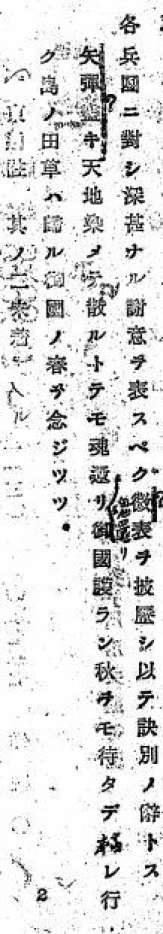 各兵團ニ對シ深甚ナル謝意ヲ表スベク微衷ヲ披瀝シ以テ訣別ノ辭トス
矢彈盡キ天地染メテ散ルトテモ魂還リ魂還リ御國護ラン秋ヲモ待タデ枯レ行
ク島ノ田草ハ歸ル御國ノ春ヲ念ジツツ。
2